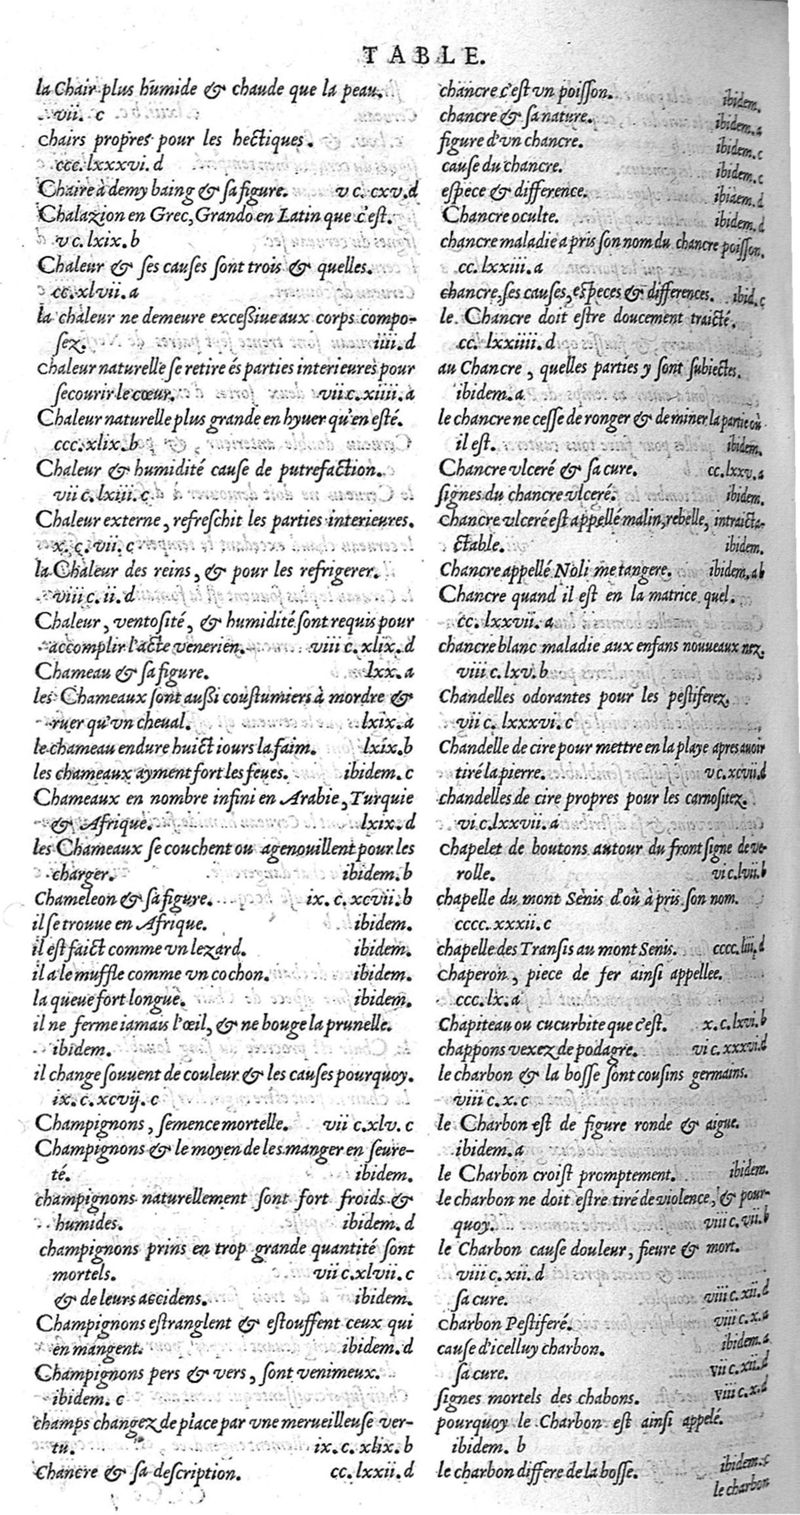 TABLE.
la Chair plus humide & chaude que la peau.
vii. c
chairs propres pour les hectiques.
ccc.lxxxvi.d
Chaire à demy baing & sa figure. v c.cxv.d
Chalazion en Grec, Grando en Latin que c'est.
v c.lxix.b
Chaleur & ses causes sont trois & quelles.
cc.xlvii.a
la chaleur ne demeure excessiue aux corps compo-
sez. iiii.d
chaleur naturelle se retire és parties interieures pour
secourir le cœur. vii c.xiiii.a
Chaleur naturelle plus grande en hyuer qu'en esté.
ccc.xlix.b
Chaleur & humidité cause de putrefaction.
vii c.lxiii.c
Chaleur externe, refreschit les parties interieures.
x. c. vii. c
la Chaleur des reins, & pour les refrigerer.
viii c. ii. d
Chaleur, ventosité, & humidité sont requis pour
accomplir l'acte venerien. viii c.xlix.d
Chameau & sa figure. lxx.a
les Chameaux sont aussi coustumiers à mordre &
ruer qu'vn cheual. lxix.a
le chameau endure huict iours la faim. lxix.b
les chameaux ayment fort les feues. ibidem.c
Chameaux en nombre infini en Arabie, Turquie
& Afrique. lxix.d
les Chameaux se couchent ou agenouillent pour les
charger. ibidem.b
Chameleon & sa figure. ix. c. xcvii.b
il se trouue en Afrique. ibidem.
il est faict comme vn lezard. ibidem.
il a le muffle comme vn cochon. ibidem.
la queue fort longue. ibidem.
il ne ferme iamais l'œil, & ne bouge la prunelle.
ibidem.
il change souuent de couleur & les causes pourquoy.
ix. c. xcvij. c
Champignons, semence mortelle. vii c.xlv. c
Champignons & le moyen de les manger en seure-
té. ibidem.
champignons naturellement sont fort froids &
humides. ibidem.d
champignons prins en trop grande quantité sont
mortels. vii c.xlvii. c
& de leurs accidens. ibidem.
Champignons estranglent & estouffent ceux qui
en mangent. ibidem.d
Champignons pers & vers, sont venimeux.
ibidem. c
champs changez de place par vne merueilleuse ver-
tu. ix. c. xlix. b
Chancre & sa description. cc.lxxii.d
chancre c'est vn poisson. ibidem.
chancre & sa nature. ibidem.a
figure d'vn chancre. ibidem.c
cause du chancre. ibidem.c
espece & difference. ibidem.d
Chancre oculte. ibidem.d
chancre maladie a pris son nom du chancre poisson.
cc. lxxiii. a
chancre, ses causes, especes & differences. ibid.c
le Chancre doit estre doucement traicté.
cc. lxxiiii. d
au Chancre, quelles parties y sont subiectes.
ibidem.a
le chancre ne cesse de ronger & de miner la partie où
il est. ibidem.
Chancre vlceré & sa cure. cc.lxxv.a
signes du chancre vlceré. ibidem.
Chancre vlceré est appellé malin, rebelle, intraicta-
ctable. ibidem.
Chancre appellé Noli me tangere. ibidem.ab
Chancre quand il est en la matrice quel.
cc. lxxvii. a
chancre blanc maladie aux enfans nouueaux nez.
viii c. lxv. b
Chandelles odorantes pour les pestiferez.
vii c. lxxxvi. c
Chandelle de cire pour mettre en la playe apres auoir
tiré la pierre. v c.xcvii.d
chandelles de cire propres pour les carnositez.
vi c.lxxvii. a
chapelet de boutons autour du front signe de ve-
rolle. vi c.lvii.b
chapelle du mont Senis d'où à pris son nom.
cccc. xxxii. c
chapelle des Transis au mont Senis. cccc.liii.d
chaperon, piece de fer ainsi appellee.
ccc. lx. a
Chapiteau ou cucurbite que c'est. x. c. lxvi. b
chappons vexez de podagre. vi c.xxxvi.d
le charbon & la bosse sont cousins germains.
viii c. x. c
le Charbon est de figure ronde & aigue.
ibidem.a
le Charbon croist promptement. ibidem.
le charbon ne doit estre tiré de violence, & pour-
quoy. viii c. vii.b
le Charbon cause douleur, fieure & mort.
viii c. xii. d
sa cure. viii c. xii. d
charbon Pestiferé. viii c. x. a
cause d'icelluy charbon. ibidem.a
sa cure. vii c.xii.d
signes mortels des chabons. viii c. x.d
pourquoy le Charbon est ainsi appelé.
ibidem. b
le charbon differe de la bosse. ibidem.c
le charbon